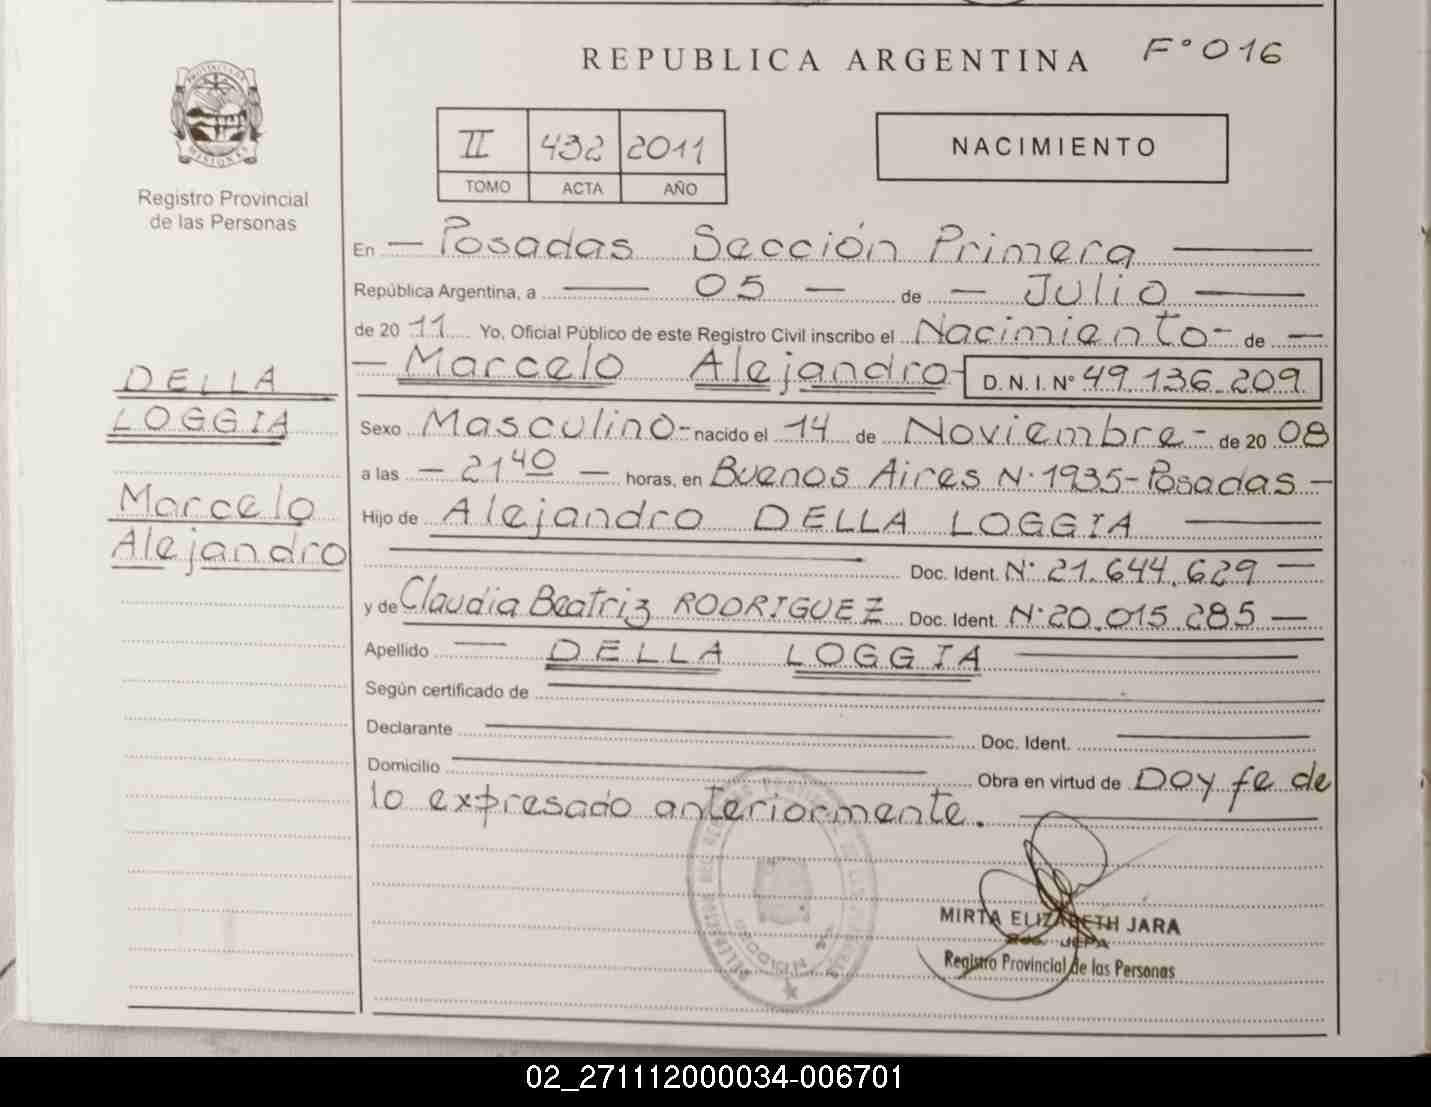 REPUBLICA ARGENTINA F° 016
II 432 2011
TOMO ACTA AÑO
NACIMIENTO
PROVINCIA DE
MISIONES
Registro Provincial
de las Personas
DELLA
LOGGIA
Marcelo
Alejandro
En - Posadas Sección Primera
República Argentina, a 05 - de - Julio
de 20 11 Yo, Oficial Público de este Registro Civil inscribo el Nacimiento - de -
- Marcelo Alejandro - D.N.I. N° 49.136.209
Sexo Masculino - nacido el 14 de Noviembre - de 20 08
a las - 21 40 - horas, en Buenos Aires N° 1935 - Posadas -
Hijo de Alejandro DELLA LOGGIA
Doc. Ident. N° 21.644.629 -
y de Claudia Beatriz RODRIGUEZ Doc. Ident. N° 20.015.285 -
Apellido - DELLA LOGGIA
Según certificado de
Declarante Doc. Ident.
Domicilio Obra en virtud de Doy fe de
lo expresado anteriormente.
MIRTA ELIZABETH JARA
JEFA
Registro Provincial de las Personas
02_271112000034-006701